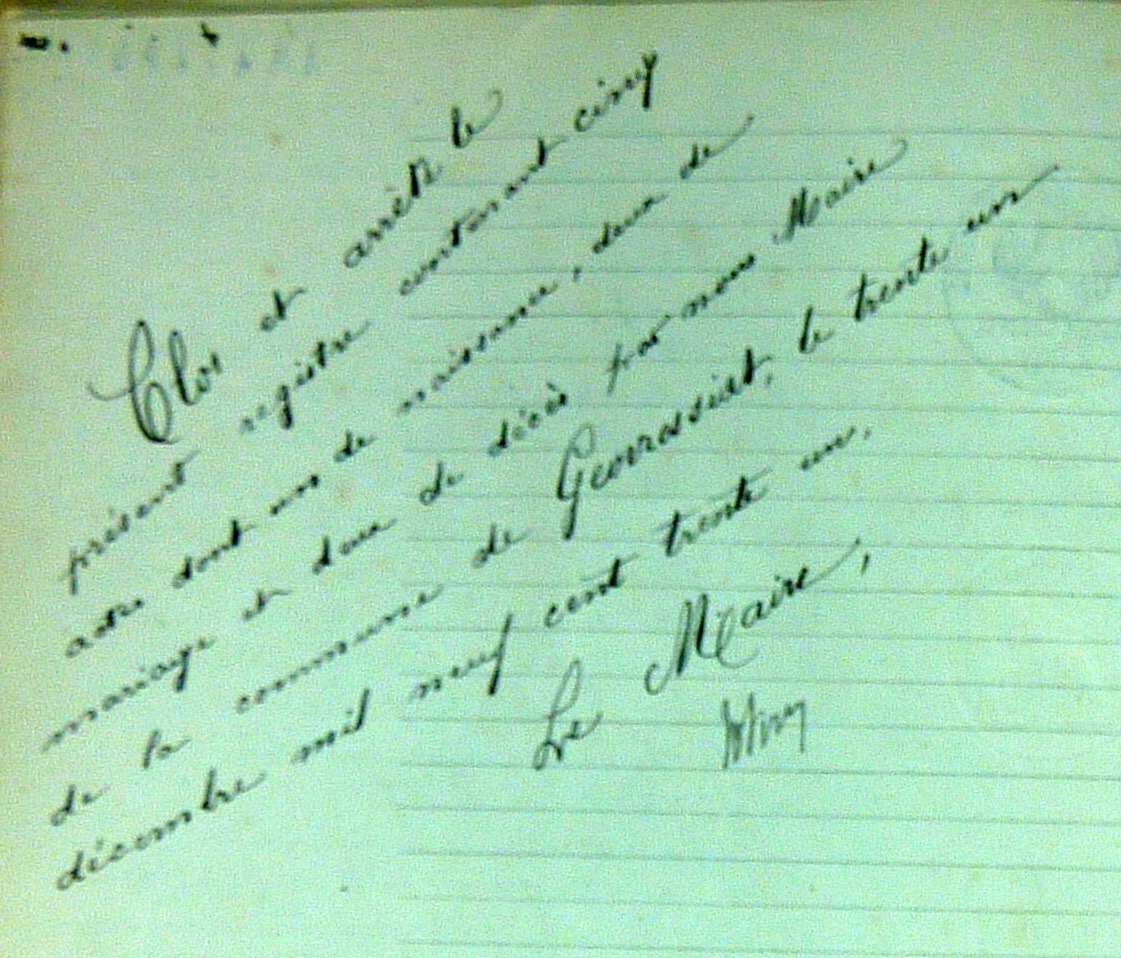 Clos et arrêté le
présent registre contenant cinq
actes dont un de naissance, deux de
mariage et deux de décès par nous Maire
de la commune de Geovreissiat, le trente un
décembre mil neuf cent trente un.
Le Maire,